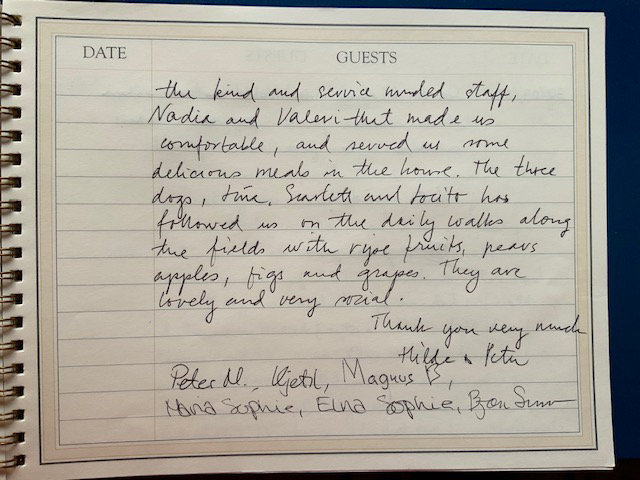 DATE
GUESTS
the kind and service minded staff,
Nadia and Valeri that made us
comfortable, and served us some
delicious meals in the house. The three
dogs, Scarlett and Tocito has
followed us on the daily walks along
the fields with ripe fruits, pears
apples, figs and grapes. They are
lovely and very social.
Thank you very much
Hilde & Peter
Peter M., Kjetil, Magnus B,
Maria Sophie, Elna Sophie,